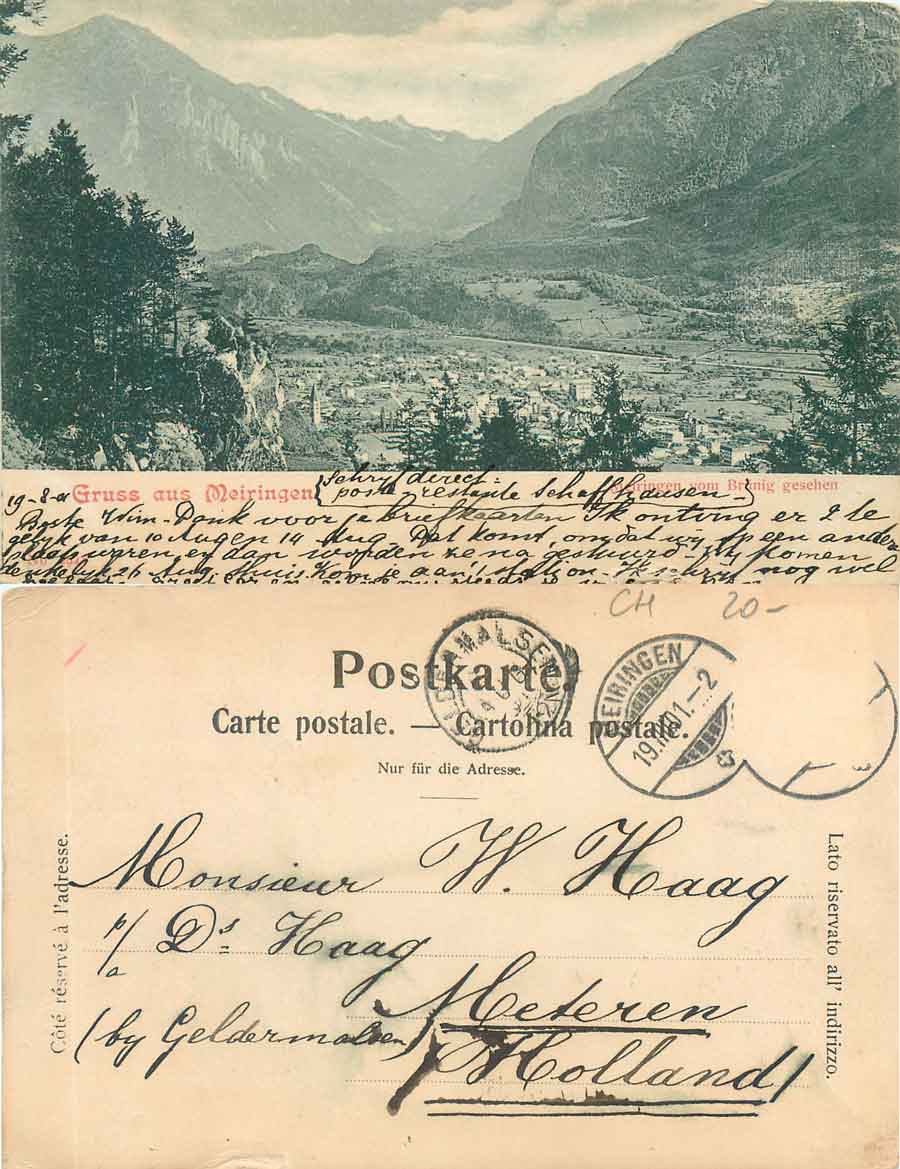 Schryf direct =
19-8-01 Gruss aus Meiringen poste restante Schaffhausen - Meiringen vom Brünig gesehen
Beste Wim - Dank voor je briefkaarten Ik ontving er 2 te
gelyk van 10 Aug en 14 Aug. Dat komt, omdat wy op een andere
plaats waren, en dan worden ze na gestuurd - Wy komen
26 Aug thuis. Kom je aan 't station - Ik schryf nog wel
CH 20-
Postkarte.
Carte postale. — Cartolina postale.
Nur für die Adresse.
GELDERMALSEN
MEIRINGEN
19.VIII.01.-2
Côté réservé à l'adresse.
Lato riservato all' indirizzo.
Monsieur W. Haag
p/a Ds Haag
Meteren
(by Geldermalsen)
Holland